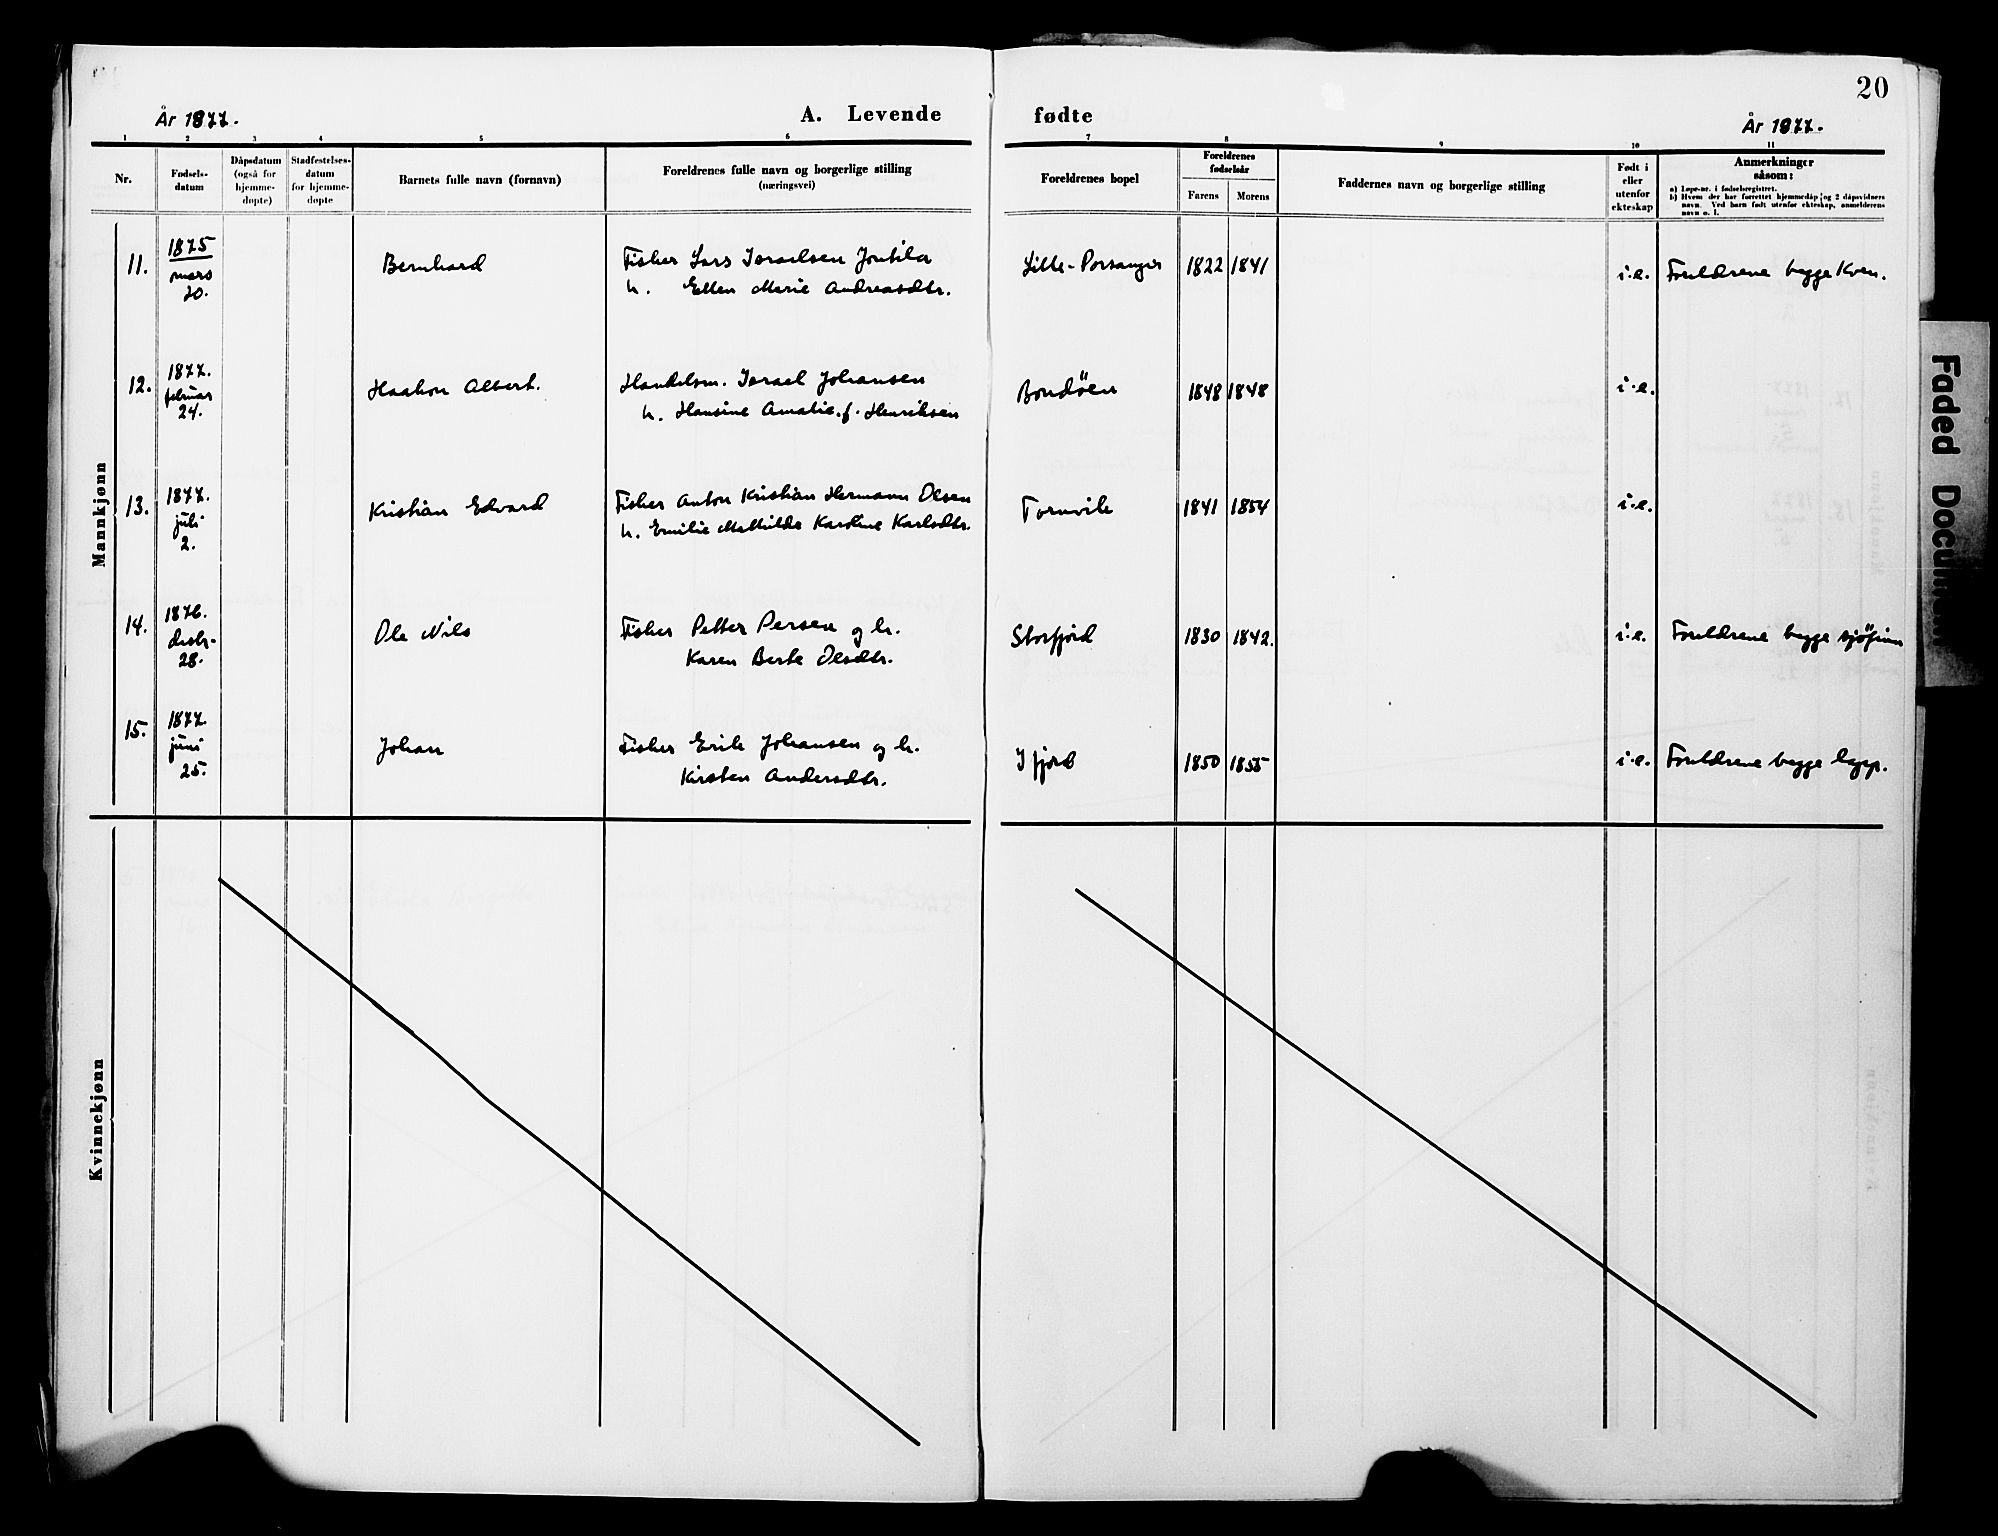 20
År 1877.
A. Levende fødte
År 1877.
1 2 3 4 5 6 7 8 9 10 11
Nr.
Fødsels-
datum
Dåpsdatum
(også for
hjemme-
døpte)
Stadfestelses-
datum
for hjemme-
døpte
Barnets fulle navn (fornavn)
Foreldrenes fulle navn og borgerlige stilling
(næringsvei)
Foreldrenes bopel
Foreldrenes
fødselsår
Farens Morens
Faddernes navn og borgerlige stilling
Født i
eller
utenfor
ekteskap
Anmerkninger
såsom:
a) Løpe-nr. i fødselsregistret.
b) Hvem der har forrettet hjemmedåp og 2 dåpsvidners
navn. Ved barn født utenfor ekteskap, anmelderens
navn o. l.
Mannkjønn
11.
1875
mars
20.
Bernhard
Fisker Lars Israelsen Jontila
h. Ellen Marie Andreasdtr.
Lille-Porsanger
1822 1841
i.e.
Foreldrene begge Kven.
12.
1877.
februar
24.
Haakon Albert.
Handelsm. Israel Johansen
h. Hansine Amalie f. Henriksen
1848 1848
i.e.
13.
1877.
juli
2.
Kristian Edvard
Fisker Anton Kristian Hermann Olsen
h. Emilie Mathilde Karoline Karlsdtr.
Tornvik
1841 1854
i.e.
14.
1876.
desbr.
28.
Ole Nils
Fisker Petter Persen og h.
Karen Berte Olsdtr.
Storfjord
1830 1842.
i.e.
Foreldrene begge sjøfinn
15.
1877.
juni
25.
Johan
Fisker Erik Johansen og h.
Kirsten Andersdtr.
Ifjord
1850 1855
i.e.
Foreldrene begge lapp.
Kvinnekjønn
Faded Docum